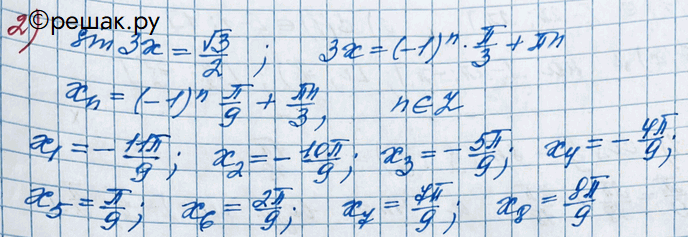 ©решак.ру
2) sin 3x = √3/2 ; 3x = (-1)ⁿ · π/3 + πn
xₙ = (-1)ⁿ π/9 + πn/3, n ∈ Z
x₁ = - 11π/9; x₂ = - 10π/9; x₃ = - 5π/9; x₄ = - 4π/9;
x₅ = π/9; x₆ = 2π/9; x₇ = 7π/9; x₈ = 8π/9